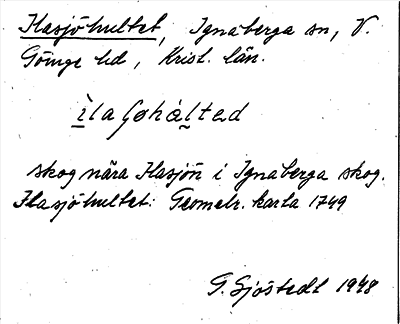 Ilasjöhultet, Ignaberga sn, V.
Göinge hd, Krist. län.
ìlaʃøhál̲ted
skog nära Ilasjön i Ignaberga skog.
Ilasjöhultet: Geometr. karta 1749
G. Sjöstedt 1948